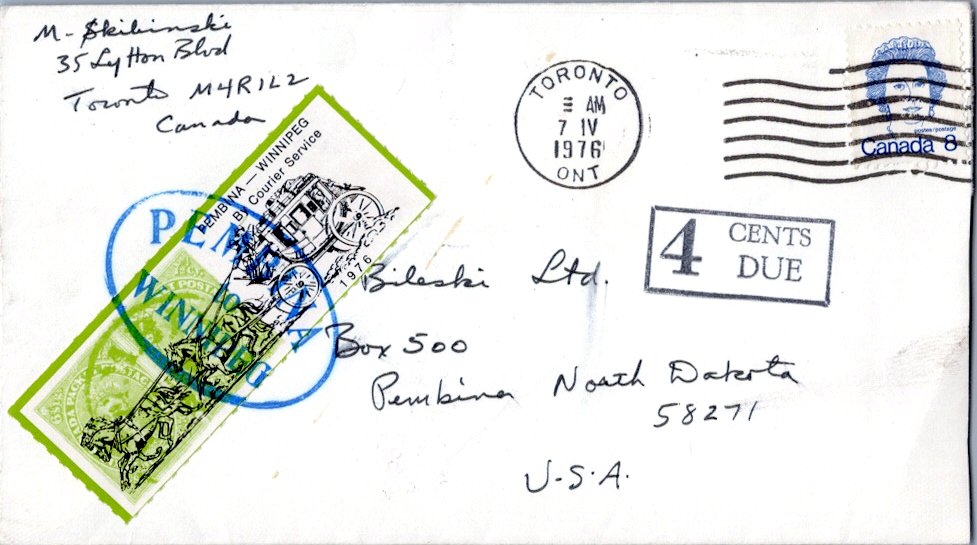 M. Skibinski
35 Lytton Blvd
Toronto M4R1L2
Canada
TORONTO
AM
7 IV
1976
ONT
postes/postage
Canada 8
PEMBINA — WINNIPEG
By Courier Service
1976
PEMBINA
TO
WINNIPEG
4 CENTS
DUE
Bileski Ltd.
Box 500
Pembina North Dakota
58271
U.S.A.